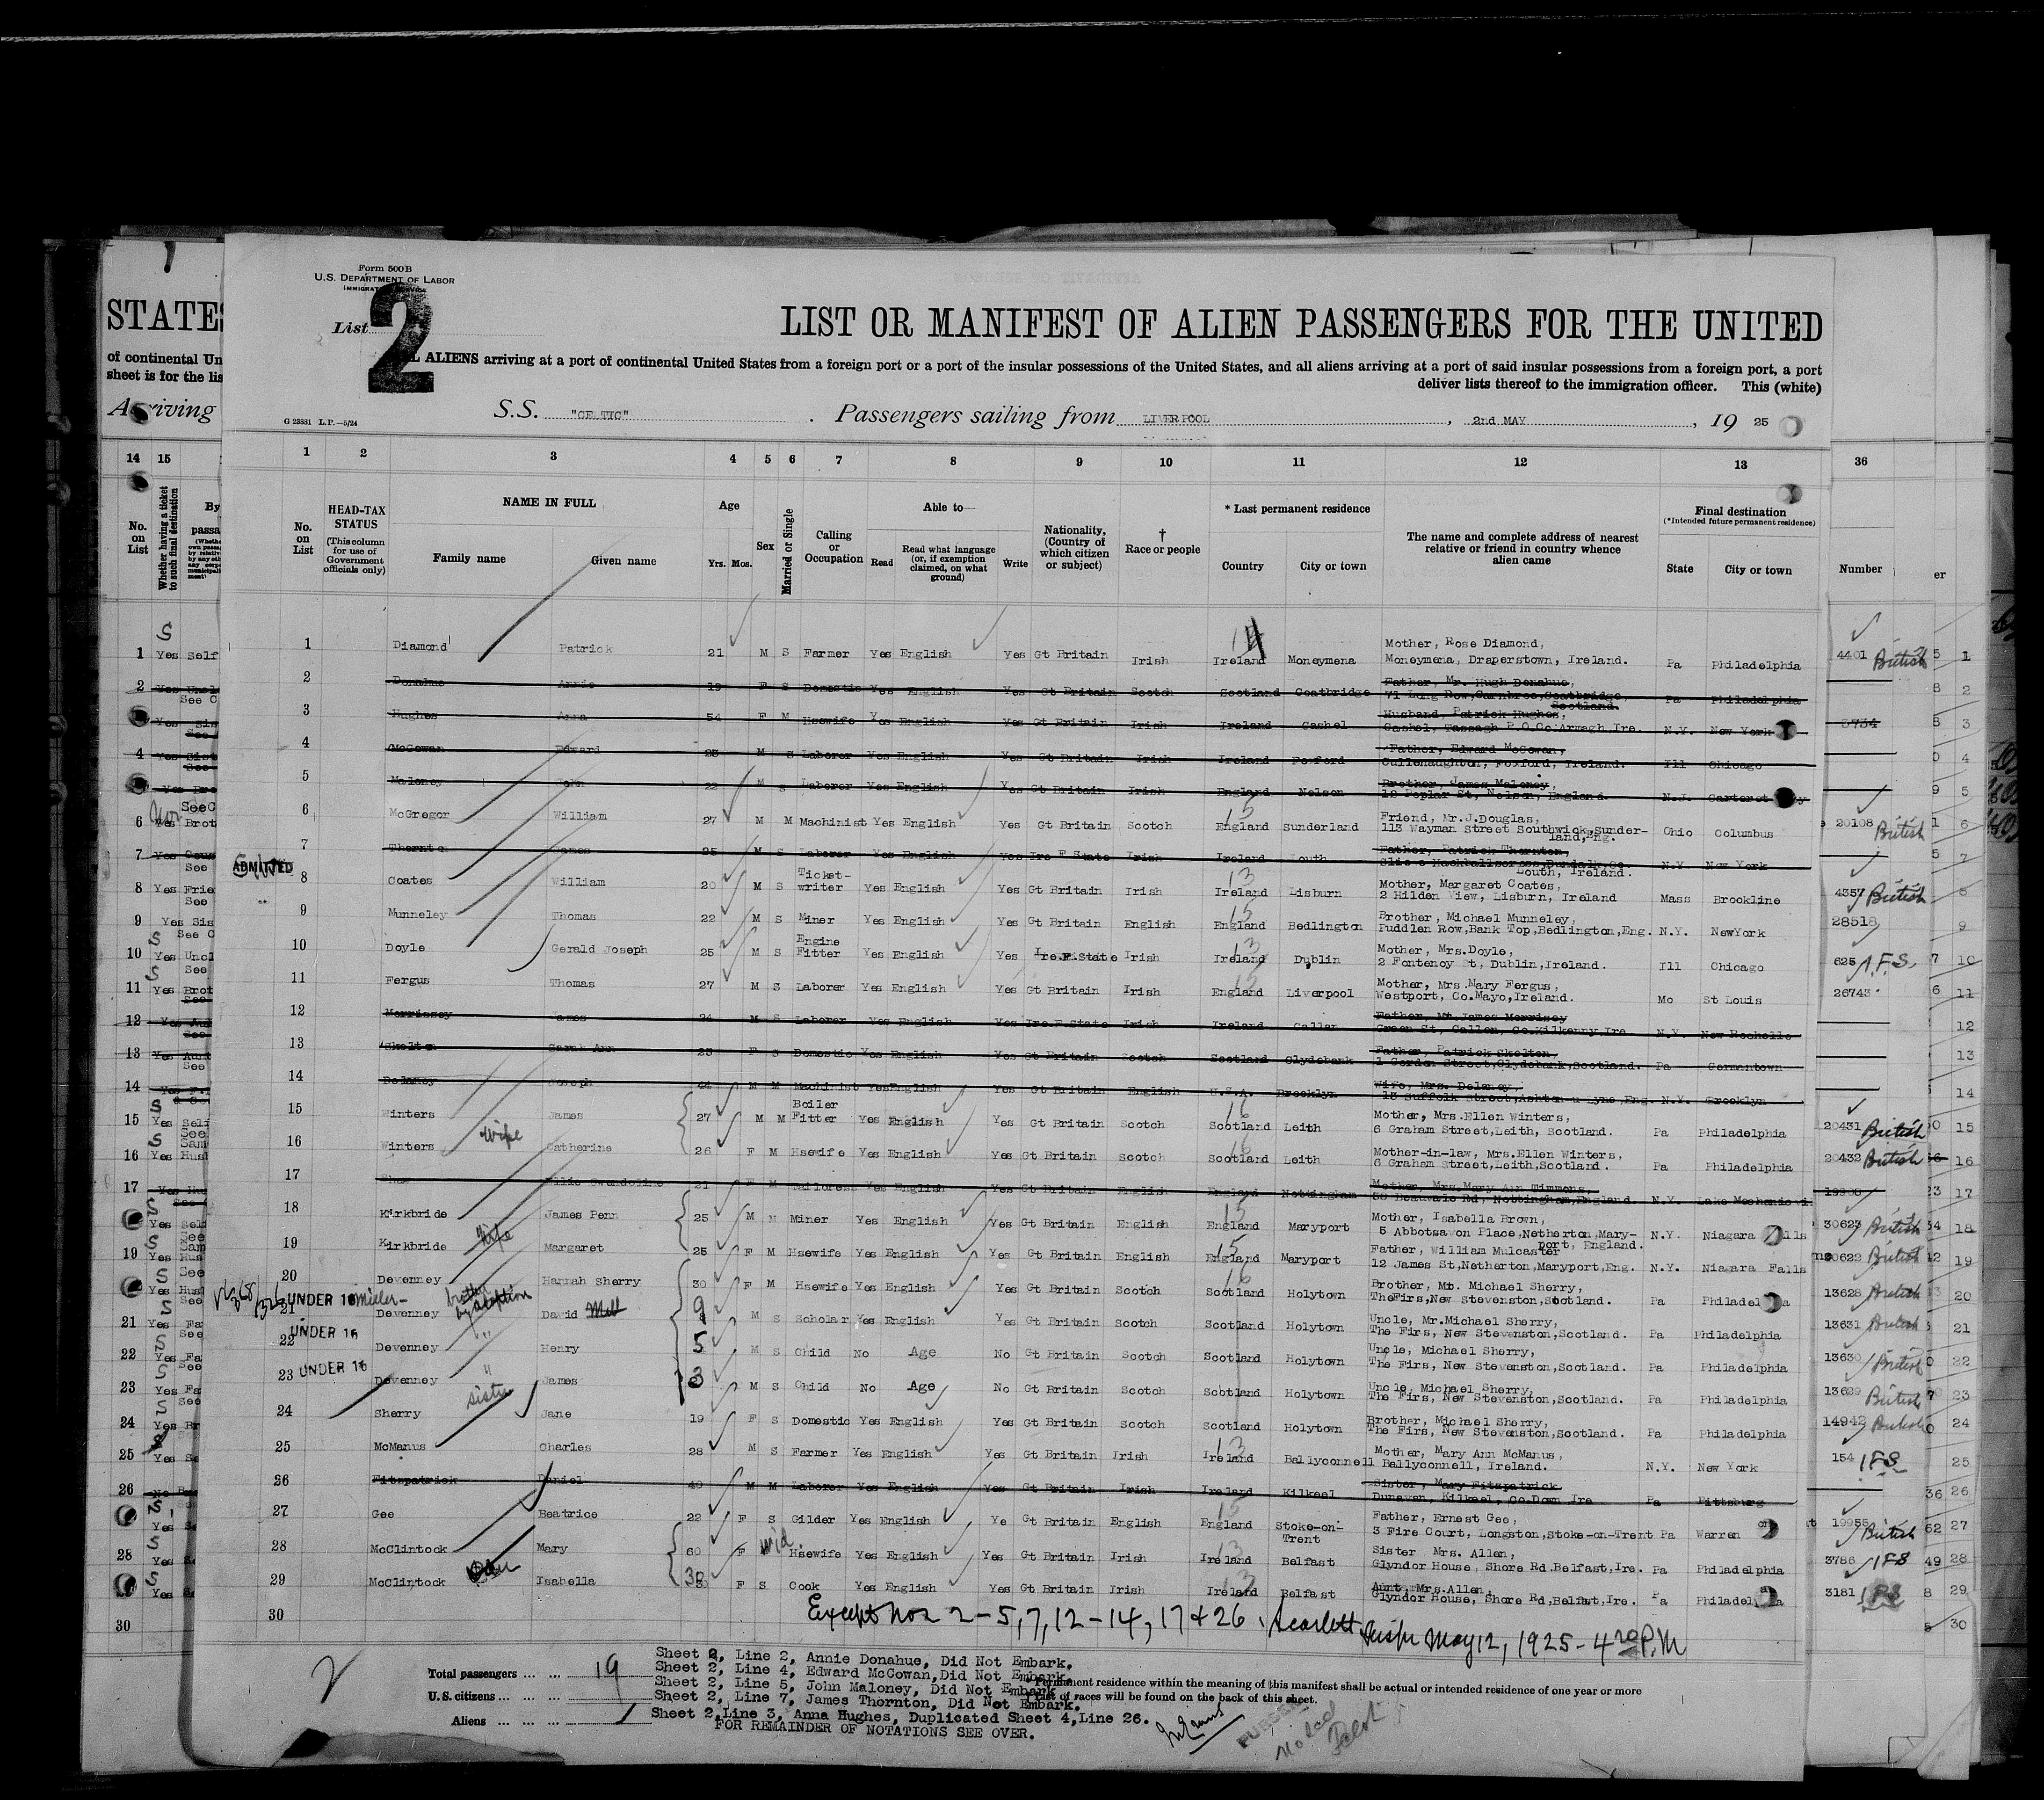 Form 500B
U.S. DEPARTMENT OF LABOR
IMMIGRATION SERVICE
List 2
LIST OR MANIFEST OF ALIEN PASSENGERS FOR THE UNITED
STATES
ALIENS arriving at a port of continental United States from a foreign port or a port of the insular possessions of the United States, and all aliens arriving at a port of said insular possessions from a foreign port, a port
of continental Un
deliver lists thereof to the immigration officer. This (white)
sheet is for the lis
Arriving
G 23881 L.P.—5/24
S.S. "CELTIC" . Passengers sailing from LIVERPOOL , 2nd MAY , 19 25
14 15 1 2 3 4 5 6 7 8 9 10 11 12 13 36
No. on List
Whether having a ticket to such final destination
By
passa
No. on List
HEAD-TAX STATUS
(This column for use of Government officials only)
NAME IN FULL
Family name Given name
Age
Yrs. Mos.
Sex
Married or Single
Calling or Occupation
Able to—
Read
Read what language (or, if exemption claimed, on what ground)
Write
Nationality, (Country of which citizen or subject)
† Race or people
* Last permanent residence
Country City or town
The name and complete address of nearest relative or friend in country whence alien came
Final destination
(*Intended future permanent residence)
State City or town
Number
er
1 Diamond Patrick 21 M S Farmer Yes English Yes Gt Britain Irish Ireland Moneymena Mother, Rose Diamond, Moneymena, Draperstown, Ireland. Pa Philadelphia 4401 British
2 Donahue Annie 19 F S Domestic Yes English Yes Gt Britain Scotch Scotland Coatbridge Father, Mr. Hugh Donahue, 71 Long Row, Carnbroe, Coatbridge, Scotland. Pa Philadelphia
3 Hughes Anna 54 F M Hsewife Yes English Yes Gt Britain Irish Ireland Cashel Husband, Patrick Hughes, Cashel, Tassagh P.O.Co.Armagh,Ire. N.Y. New York 3734
4 McGowan Edward 23 M S Laborer Yes English Yes Gt Britain Irish Ireland Foxford Father, Edward McGowan, Cullenaughton, Foxford, Ireland. Ill Chicago
5 Maloney John 22 M S Laborer Yes English Yes Gt Britain Irish England Nelson Brother, James Maloney, 12 Poplar St, Nelson, England. N.J. Carteret
6 McGregor William 27 M M Machinist Yes English Yes Gt Britain Scotch 13 England Sunderland Friend, Mr.J.Douglas, 113 Wayman Street Southwick,Sunderland,Eng. Ohio Columbus 20108 British
ADMITTED
7 Thornton James 25 M S Laborer Yes English Yes Ire F State Irish Ireland Louth Father, Patrick Thornton, Louth, Ireland. N.Y New York
8 Coates William 20 M S Ticket-writer Yes English Yes Gt Britain Irish 13 Ireland Lisburn Mother, Margaret Coates, 2 Hilden View, Lisburn, Ireland Mass Brookline 4357 British
9 Munneley Thomas 22 M S Miner Yes English Yes Gt Britain English 13 England Bedlington Brother, Michael Munneley, Puddlen Row,Bank Top,Bedlington,Eng. N.Y. NewYork 28518
10 Doyle Gerald Joseph 25 M S Engine Fitter Yes English Yes Ire.F.State Irish 13 Ireland Dublin Mother, Mrs.Doyle, 2 Fontenoy St, Dublin,Ireland. Ill Chicago 625 I.F.S.
11 Fergus Thomas 27 M S Laborer Yes English Yes Gt Britain Irish 13 England Liverpool Mother, Mrs.Mary Fergus, Westport, Co.Mayo,Ireland. Mo St Louis 26743
12 Morrissey James 24 M S Laborer Yes English Yes Ire.F.State Irish Ireland Callan Father, Mr.James Morrissey Green St, Callan, Co.Kilkenny Ire N.Y. New Rochelle
13 Skelton Sarah Ann 23 F S Domestic Yes English Yes Gt Britain Scotch Scotland Clydebank Father, Patrick Skelton, 1 Gordon Street,Clydebank,Scotland. Pa Germantown
14 Delaney Joseph 44 M M Machinist Yes English Yes Gt Britain English U.S.A. Brooklyn Wife, Mrs. Delaney, 13 Suffolk Street,Ashton u Lyne,Eng. N.Y. Brooklyn
15 Winters James 27 M M Boiler Fitter Yes English Yes Gt Britain Scotch 16 Scotland Leith Mother, Mrs.Ellen Winters, 6 Graham Street,Leith, Scotland. Pa Philadelphia 20431 British
16 Winters wife Catherine 26 F M Hsewife Yes English Yes Gt Britain Scotch 16 Scotland Leith Mother-in-law, Mrs.Ellen Winters, 6 Graham Street,Leith,Scotland. Pa Philadelphia 20432 British
17 Shaw Gwendoline 21 F M Tailoress Yes English Yes Gt Britain English England Nottingham Mother, Mrs.Mary Ann Timmons, Nottingham,England. N.Y.
18 Kirkbride James Penn 25 M M Miner Yes English Yes Gt Britain English 13 England Maryport Mother, Isabella Brown, 5 Abbotsavon Place,Netherton,Maryport, England. N.Y. Niagara Falls 30623 British
19 Kirkbride wife Margaret 25 F M Hsewife Yes English Yes Gt Britain English 13 England Maryport Father, William Mulcaster 12 James St,Netherton,Maryport,Eng. N.Y. Niagara Falls 30622 British
20 Devenney Hannah Sherry 30 F M Hsewife Yes English Yes Gt Britain Scotch 16 Scotland Holytown Brother, Mr. Michael Sherry, TheFirs,New Stevenston,Scotland. Pa Philadelphia 13628 British
UNDER 16 Miller- brother by adoption
21 Devenney David 9 M S Scholar Yes English Yes Gt Britain Scotch Scotland Holytown Uncle, Mr.Michael Sherry, The Firs, New Stevenston,Scotland. Pa Philadelphia 13631 British
UNDER 16
22 Devenney " Henry 5 M S Child No Age No Gt Britain Scotch Scotland Holytown Uncle, Michael Sherry, The Firs, New Stevenston,Scotland. Pa Philadelphia 13630 British
UNDER 16
23 Devenney " James 3 M S Child No Age No Gt Britain Scotch Scotland Holytown Uncle, Michael Sherry, The Firs, New Stevenston,Scotland. Pa Philadelphia 13629 British
24 Sherry sister Jane 19 F S Domestic Yes English Yes Gt Britain Scotch Scotland Holytown Brother, Michael Sherry, The Firs, New Stevenston,Scotland. Pa Philadelphia 14942 British
25 McManus Charles 28 M S Farmer Yes English Yes Gt Britain Irish 13 Ireland Ballyconnell Mother, Mary Ann McManus, Ballyconnell, Ireland. N.Y. New York 154 IFS
26 Fitzpatrick Daniel 40 M M Laborer Yes English Yes Gt Britain Irish Ireland Kilkeel Sister, Mary Fitzpatrick Dunavan, Kilkeel, Co.Down Ire Pa Pittsburg
27 Gee Beatrice 22 F S Gilder Yes English Ye Gt Britain English 13 England Stoke-on-Trent Father, Ernest Gee, 3 Fire Court, Longston,Stoke-on-Trent Pa Warren 19955 British
28 McClintock Mary 60 F wid. Hsewife Yes English Yes Gt Britain Irish 13 Ireland Belfast Sister Mrs. Allen, Glyndor House, Shore Rd.Belfast,Ire. Pa Philadelphia 3786 IFS
29 McClintock Isabella 30 F S Cook Yes English Yes Gt Britain Irish 13 Ireland Belfast Aunt, Mrs.Allen, Glyndor House, Shore Rd,Belfast,Ire. Pa Philadelphia 3181 IFS
30 Except nos 2-5, 7, 12-14, 17 & 26, Scarlett Inspr May 12, 1925 - 4 20 P.M
Total passengers ... ... 19
U.S. citizens ... ... ...
Aliens ... ... ...
Sheet 2, Line 2, Annie Donahue, Did Not Embark.
Sheet 2, Line 4, Edward McGowan,Did Not Embark.
Sheet 2, Line 5, John Maloney, Did Not Embark
Sheet 2, Line 7, James Thornton, Did Not Embark.
Sheet 2,Line 3, Anna Hughes, Duplicated Sheet 4,Line 26.
FOR REMAINDER OF NOTATIONS SEE OVER.
* Permanent residence within the meaning of this manifest shall be actual or intended residence of one year or more
† List of races will be found on the back of this sheet.